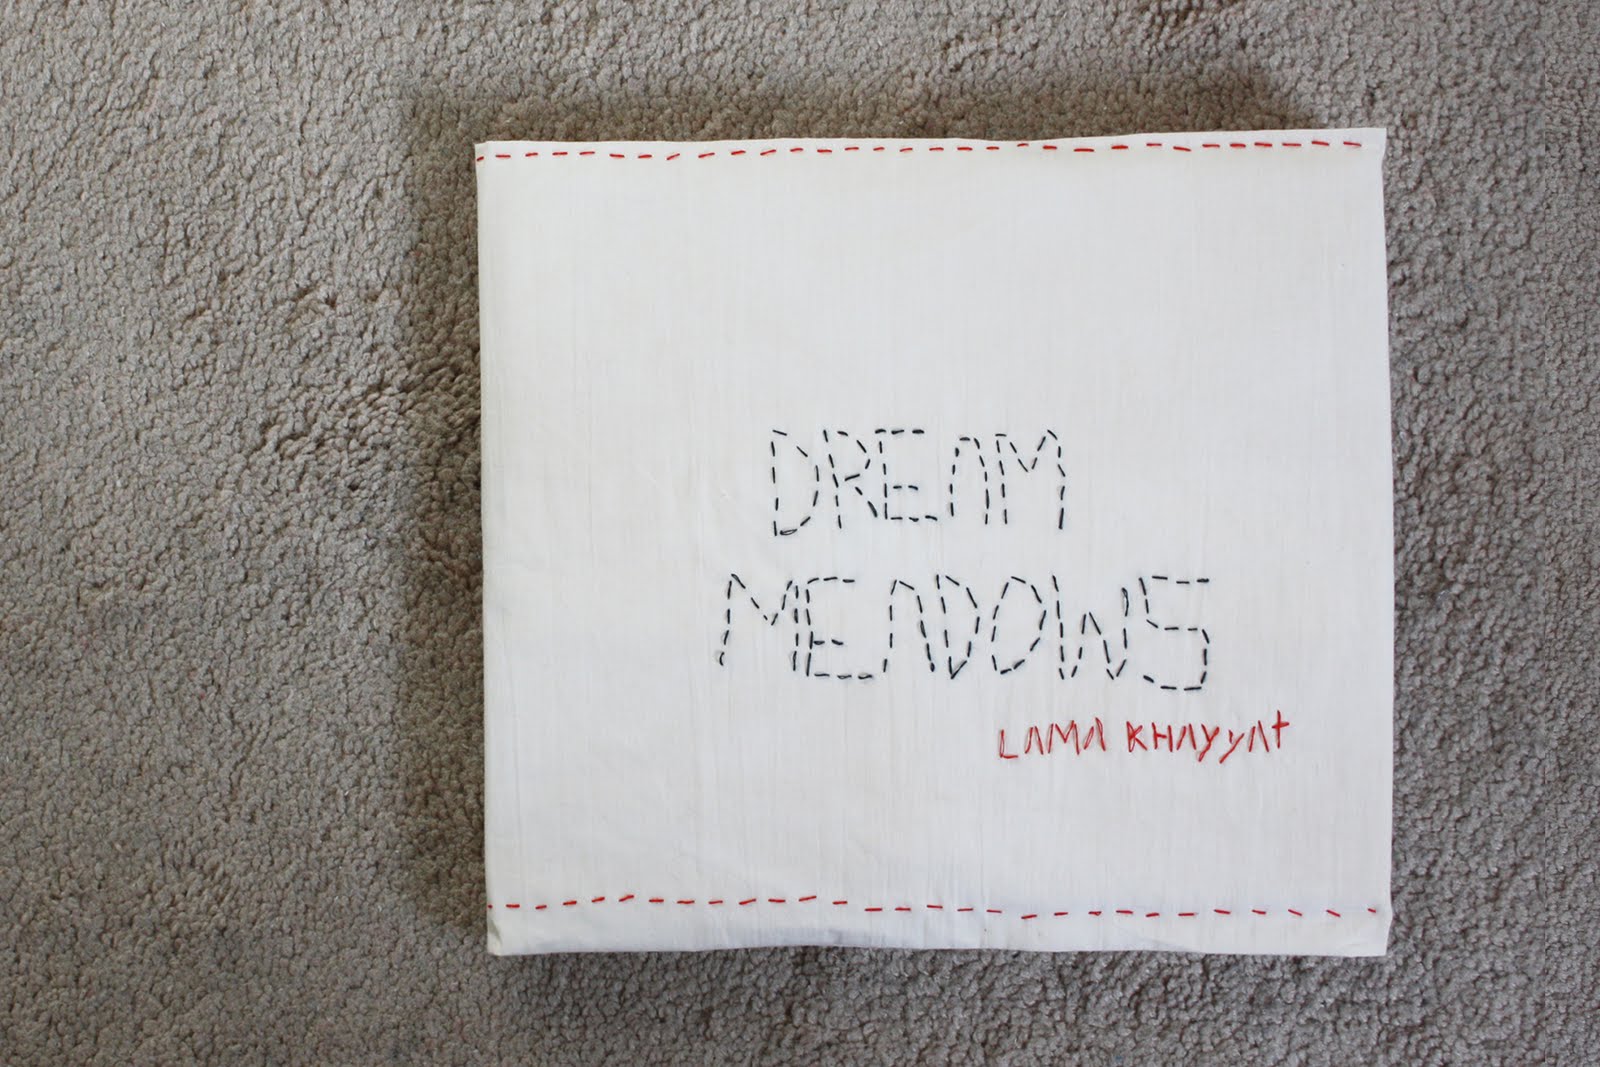 DREAM
MEADOWS
LAMA KHAYYAt